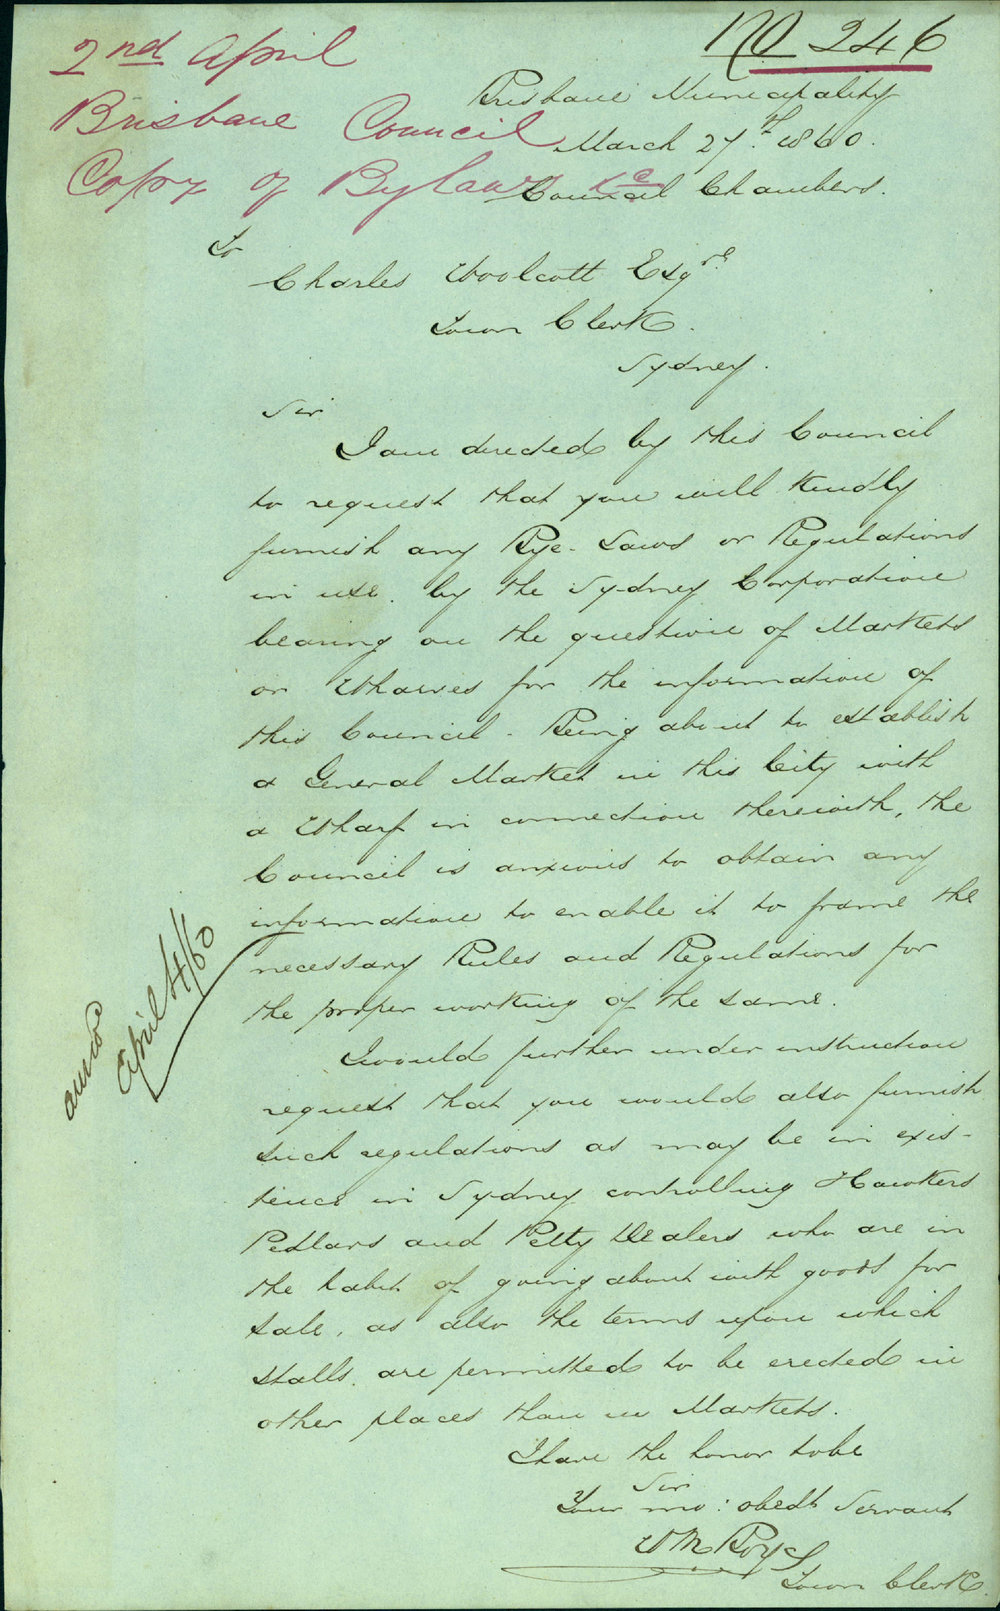 No 246
2nd April
Brisbane Council
Copy of Bylaws &c
Brisbane Municipality
March 27th 1860.
Council Chambers.
To
Charles Woolcott Esqre
Town Clerk.
Sydney.
Sir
I am directed by this Council
to request that you will kindly
furnish any Bye-Laws or Regulations
in use by the Sydney Corporation
bearing on the question of Markets
or Wharves for the information of
this Council. Being about to establish
a General Market in this City with
a Wharf in connection therewith, the
Council is anxious to obtain any
information to enable it to frame the
necessary Rules and Regulations for
the proper working of the same.
I would further under instruction
request that you would also furnish
such regulations as may be in exis-
tence in Sydney controlling Hawkers
Pedlars and Petty Dealers who are in
the habit of going about with goods for
sale, as also the terms upon which
stalls are permitted to be erected in
other places than in Markets.
I have the honor to be
Sir
Your mo: obedt Servant
Wm Boys
Town Clerk.
answd
April 4/60